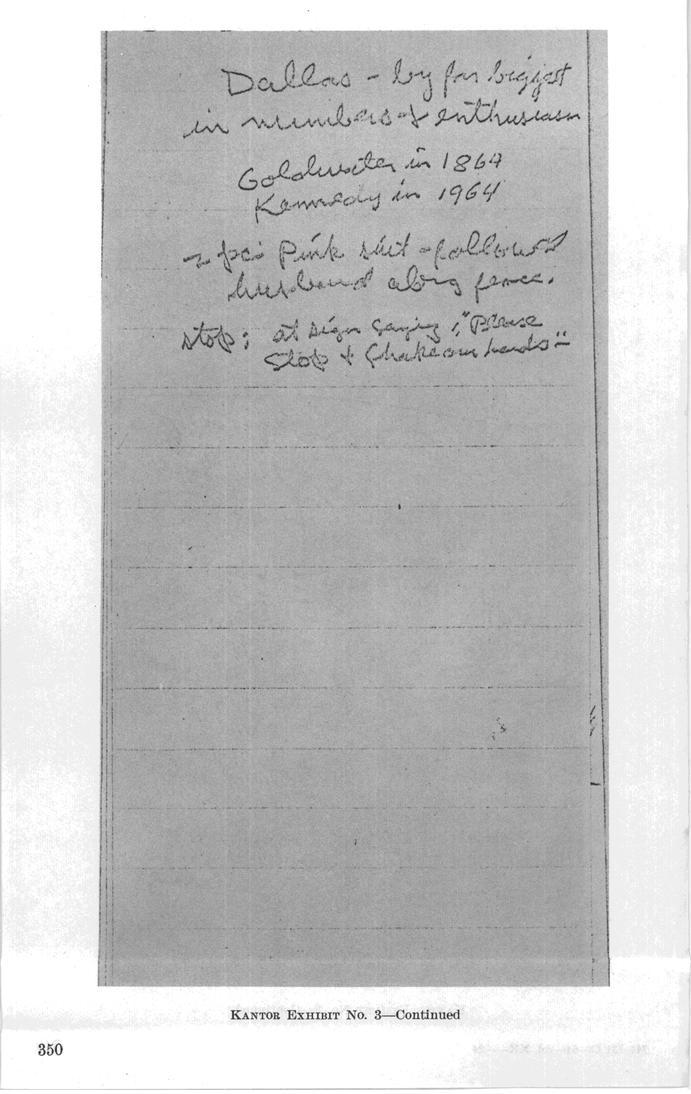 Dallas - by far biggest
in numbers & enthusiasm
Goldwater in 1864
Kennedy in 1964
2 pc: Pink suit - followed
husband along fence.
stop: at sign saying: "Please
Stop & Shake our hands"
KANTOR EXHIBIT No. 3—Continued
350